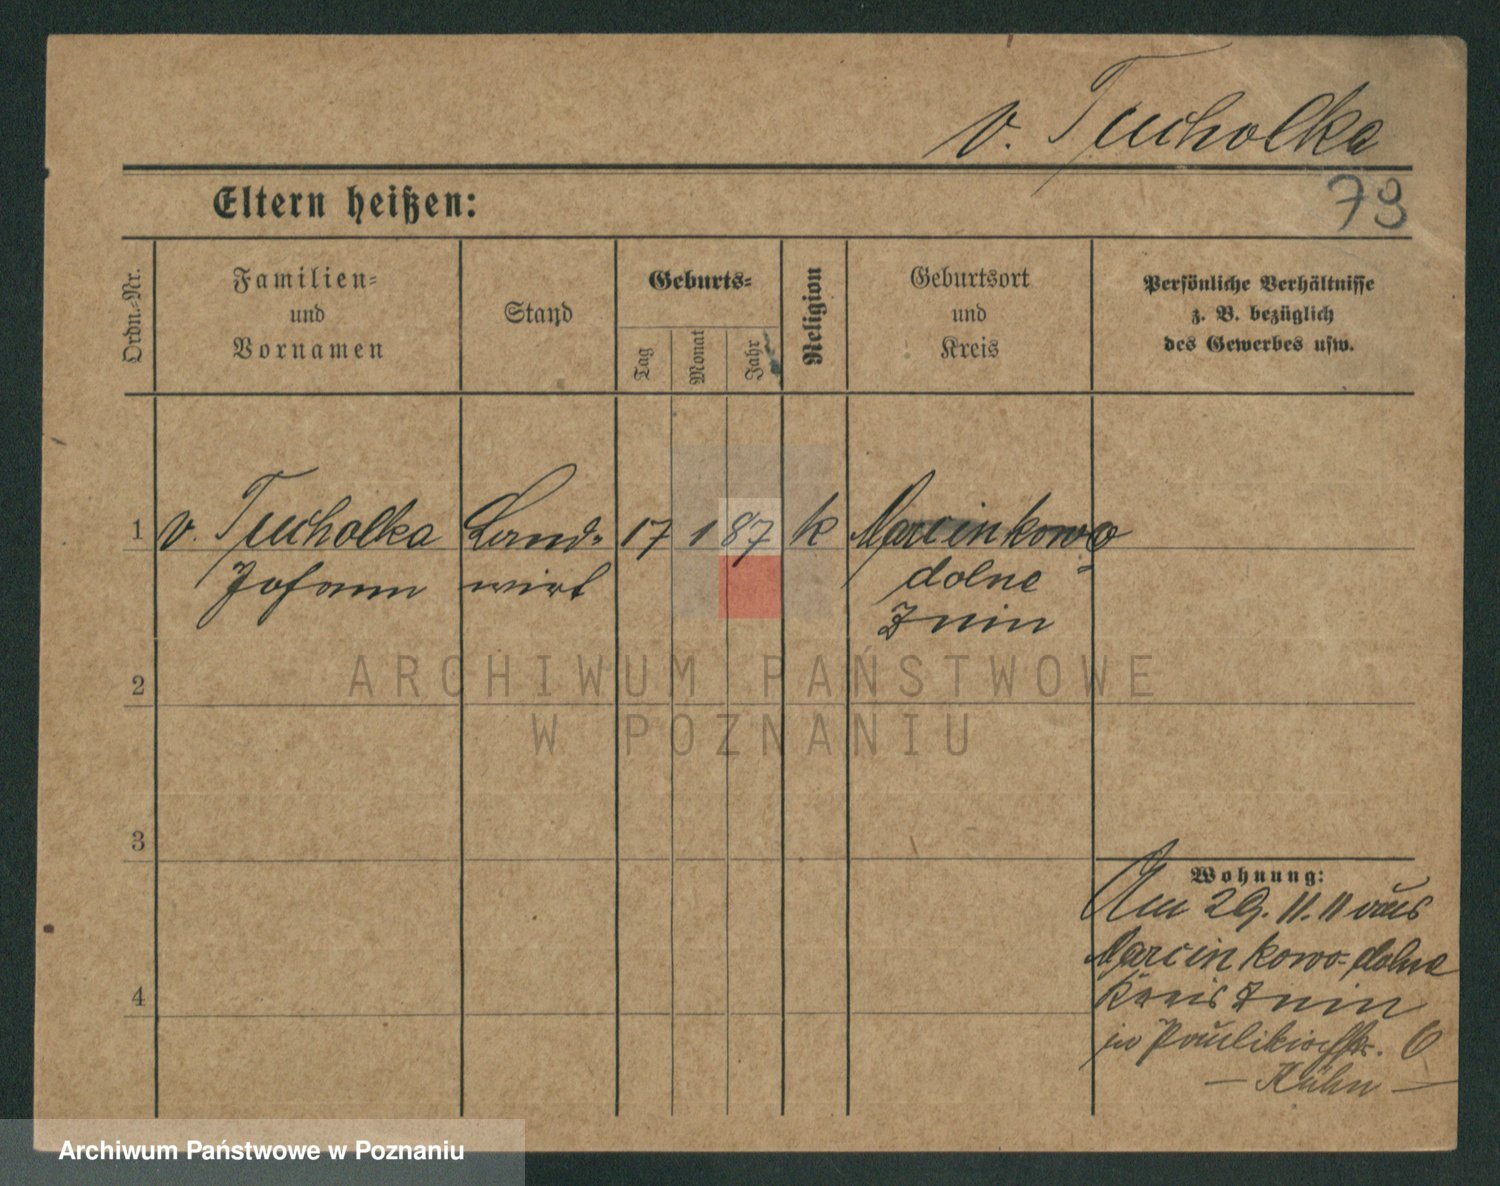 v. Tucholka
Eltern heißen:
79
Ordn.-Nr.
Familien-
und
Vornamen
Stand
Geburts-
Tag
Monat
Jahr
Religion
Geburtsort
und
Kreis
Persönliche Verhältnisse
z. B. bezüglich
des Gewerbes usw.
1 v. Tucholka Land- 17 1 87 k Marcinkowo
Johann wirt dolne
Znin
2
3
4
Wohnung:
Am 29. 11. 11 aus
Marcinkowo-dolne
Kreis Znin
in Paulikirchstr. 6
— Kühn —
ARCHIWUM PAŃSTWOWE
W POZNANIU
Archiwum Państwowe w Poznaniu